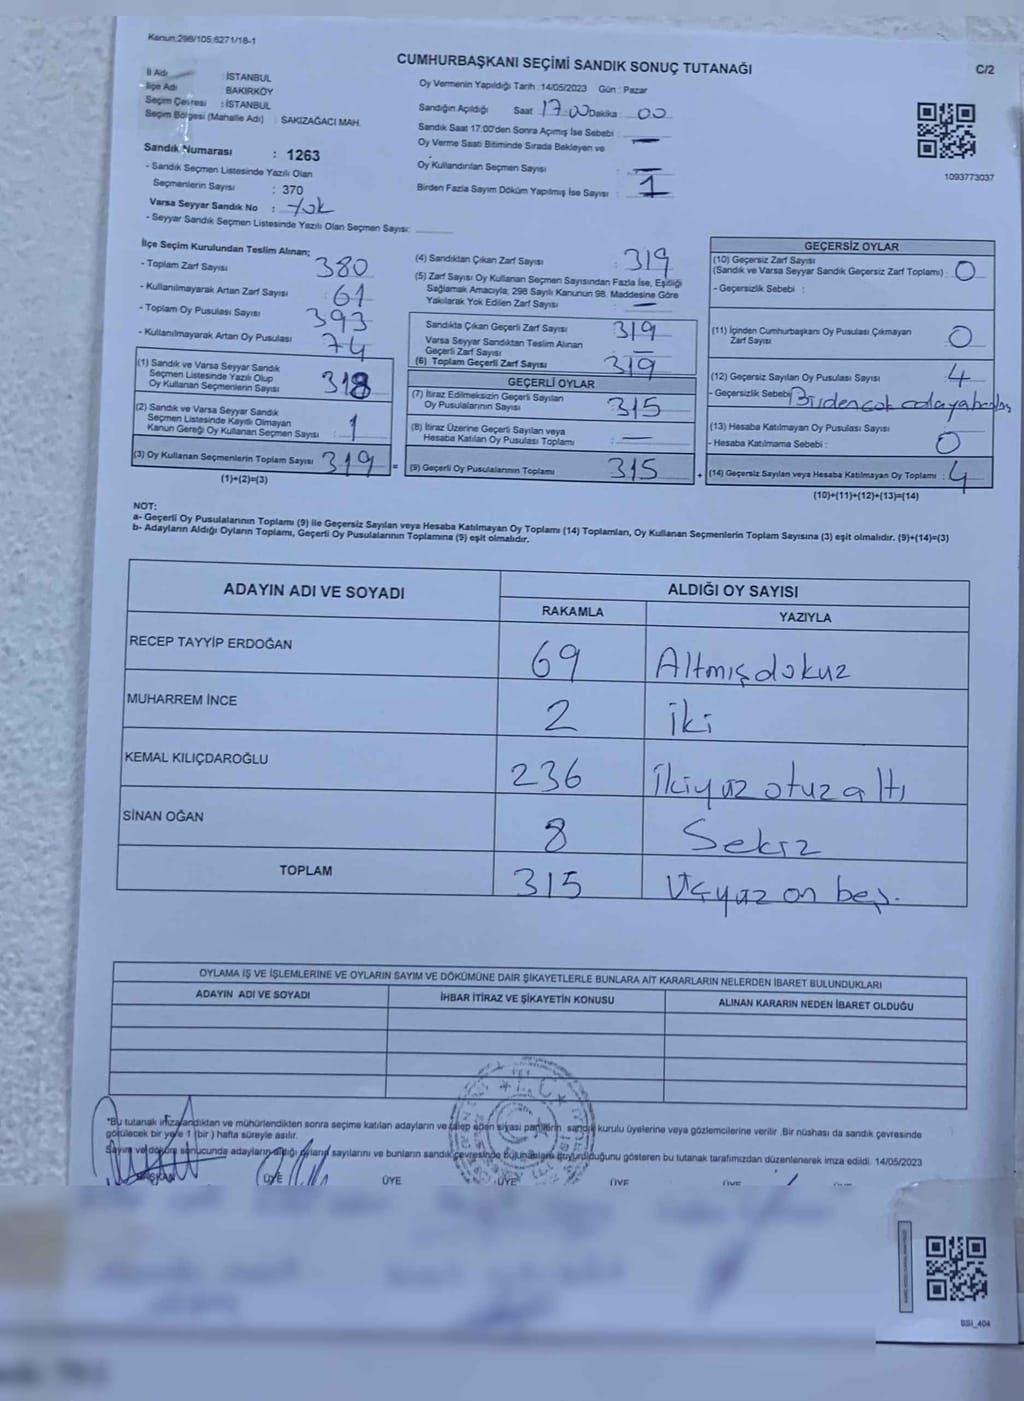 Kanun:298/105,6271/18-1
CUMHURBAŞKANI SEÇİMİ SANDIK SONUÇ TUTANAĞI
C/2
İl Adı : İSTANBUL
İlçe Adı : BAKIRKÖY
Seçim Çevresi : İSTANBUL
Seçim Bölgesi (Mahalle Adı) : SAKIZAĞACI MAH.
Sandık Numarası : 1263
- Sandık Seçmen Listesinde Yazılı Olan
Seçmenlerin Sayısı : 370
Varsa Seyyar Sandık No : Yok
- Seyyar Sandık Seçmen Listesinde Yazılı Olan Seçmen Sayısı:
Oy Vermenin Yapıldığı Tarih :14/05/2023 Gün : Pazar
Sandığın Açıldığı Saat 17:00 Dakika : 00
Sandık Saat 17:00'den Sonra Açımış İse Sebebi : —
Oy Verme Saati Bitiminde Sırada Bekleyen ve
Oy Kullandırılan Seçmen Sayısı : —
Birden Fazla Sayım Döküm Yapılmış İse Sayısı : 1
1093773037
İlçe Seçim Kurulundan Teslim Alınan;
- Toplam Zarf Sayısı : 380
- Kullanılmayarak Artan Zarf Sayısı : 61
- Toplam Oy Pusulası Sayısı : 393
- Kullanılmayarak Artan Oy Pusulası : 74
(1) Sandık ve Varsa Seyyar Sandık
Seçmen Listesinde Yazılı Olup
Oy Kullanan Seçmenlerin Sayısı : 318
(2) Sandık ve Varsa Seyyar Sandık
Seçmen Listesinde Kayıtlı Olmayan
Kanun Gereği Oy Kullanan Seçmen Sayısı : 1
(3) Oy Kullanan Seçmenlerin Toplam Sayısı : 319 =
(1)+(2)=(3)
(4) Sandıktan Çıkan Zarf Sayısı : 319
(5) Zarf Sayısı Oy Kullanan Seçmen Sayısından Fazla İse, Eşitliği
Sağlamak Amacıyla, 298 Sayılı Kanunun 98. Maddesine Göre
Yakılarak Yok Edilen Zarf Sayısı : —
Sandıkta Çıkan Geçerli Zarf Sayısı : 319
Varsa Seyyar Sandıktan Teslim Alınan
Geçerli Zarf Sayısı : —
(6) Toplam Geçerli Zarf Sayısı : 319
GEÇERLİ OYLAR
(7) İtiraz Edilmeksizin Geçerli Sayılan
Oy Pusulalarının Sayısı : 315
(8) İtiraz Üzerine Geçerli Sayılan veya
Hesaba Katılan Oy Pusulası Toplamı : —
(9) Geçerli Oy Pusulalarının Toplamı : 315 +
GEÇERSİZ OYLAR
(10) Geçersiz Zarf Sayısı
(Sandık ve Varsa Seyyar Sandık Geçersiz Zarf Toplamı) : 0
- Geçersizlik Sebebi :
(11) İçinden Cumhurbaşkanı Oy Pusulası Çıkmayan
Zarf Sayısı : 0
(12) Geçersiz Sayılan Oy Pusulası Sayısı : 4
- Geçersizlik Sebebi
(13) Hesaba Katılmayan Oy Pusulası Sayısı
- Hesaba Katılmama Sebebi : 0
(14) Geçersiz Sayılan veya Hesaba Katılmayan Oy Toplamı : 4
(10)+(11)+(12)+(13)=(14)
NOT:
a- Geçerli Oy Pusulalarının Toplamı (9) ile Geçersiz Sayılan veya Hesaba Katılmayan Oy Toplamı (14) Toplamları, Oy Kullanan Seçmenlerin Toplam Sayısına (3) eşit olmalıdır. (9)+(14)=(3)
b- Adayların Aldığı Oyların Toplamı, Geçerli Oy Pusulalarının Toplamına (9) eşit olmalıdır.
ADAYIN ADI VE SOYADI ALDIĞI OY SAYISI
RAKAMLA YAZIYLA
RECEP TAYYİP ERDOĞAN 69 Altmışdokuz
MUHARREM İNCE 2 iki
KEMAL KILIÇDAROĞLU 236 ikiyüz otuz altı
SİNAN OĞAN 8 Sekiz
TOPLAM 315 üçyüz on beş.
OYLAMA İŞ VE İŞLEMLERİNE VE OYLARIN SAYIM VE DÖKÜMÜNE DAİR ŞİKAYETLERLE BUNLARA AİT KARARLARIN NELERDEN İBARET BULUNDUKLARI
ADAYIN ADI VE SOYADI İHBAR İTİRAZ VE ŞİKAYETİN KONUSU ALINAN KARARIN NEDEN İBARET OLDUĞU
*Bu tutanak imzalandıktan ve mühürlendikten sonra seçime katılan adayların ve talep eden siyasi partilerin sandık kurulu üyelerine veya gözlemcilerine verilir .Bir nüshası da sandık çevresinde
görülecek bir yere 1 (bir ) hafta süreyle asılır.
Sayım ve döküm sonucunda adayların aldığı oyların sayılarını ve bunların sandık çevresinde bulunanlara duyurulduğunu gösteren bu tutanak tarafımızdan düzenlenerek imza edildi. 14/05/2023
BAŞKAN ÜYE ÜYE ÜYE ÜYE ÜYE
BSI_404